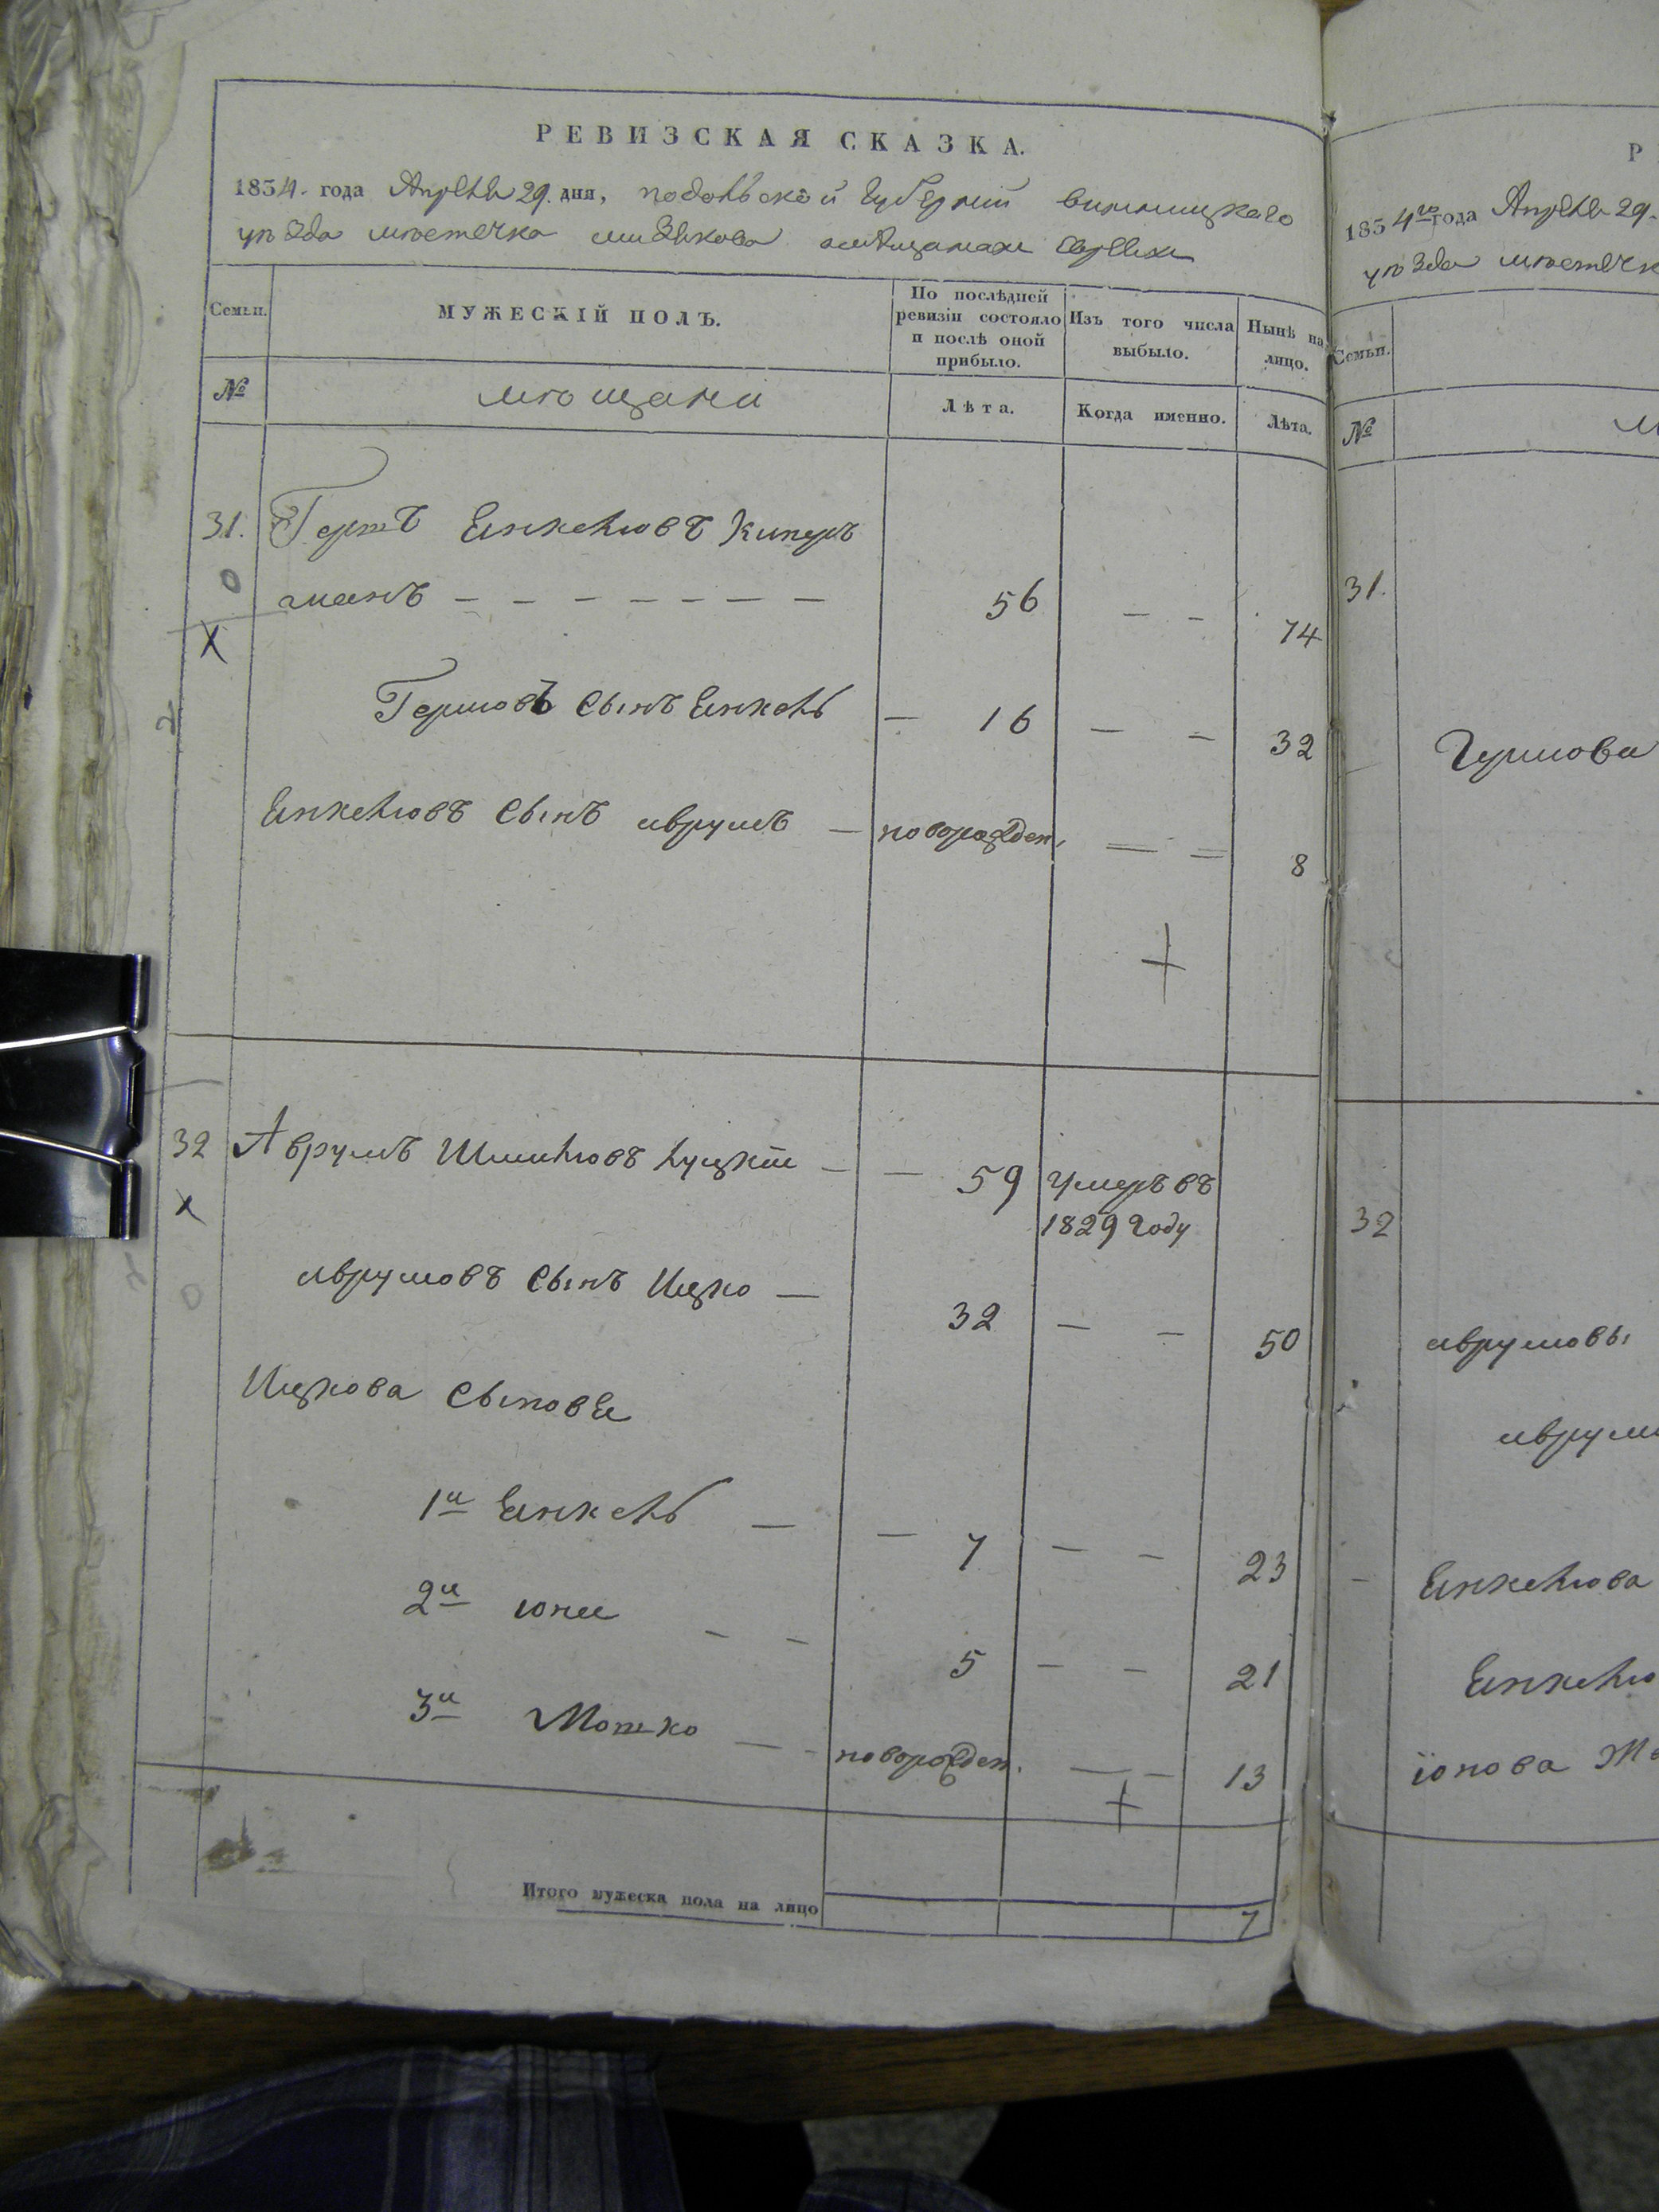 РЕВИЗСКАЯ СКАЗКА.
1834. года Апрѣля 29. дня, подольской губерніи винницкаго
уѣзда мѣстечка о мѣщанахъ евреяхъ
Семьи. МУЖЕСКІЙ ПОЛЪ. По послѣдней ревизіи состояло и послѣ оной прибыло. Изъ того числа выбыло. Нынѣ на лицо.
№ мѣщани Лѣта. Когда именно. Лѣта.
31. Гершъ Енкелювъ Киперъ
манъ — — — — — — — 56 — — 74
0
X
Гершовъ сынъ Енкель — 16 — — 32
2
Енкелювъ сынъ аврумъ — новорожден. — — 8
+
32 Аврумъ Шмилювъ луцкій — — 59 умеръ въ
1829 году
X
аврумовъ сынъ Ицко — 32 — — 50
0
Ицкова сыновя
1й Енкель — — 7 — — 23
2й юна — — 5 — — 21
3й Мошко — - новорожден. — - 13
+
Итого мужеска пола на лицо 7
Р
1834го года Апрѣля 29.
уѣзда мѣстечк
Семьи.
№ м
31.
Гершова
32
аврумовы
аврум
Енкелюва
Енкелю
іонова Же